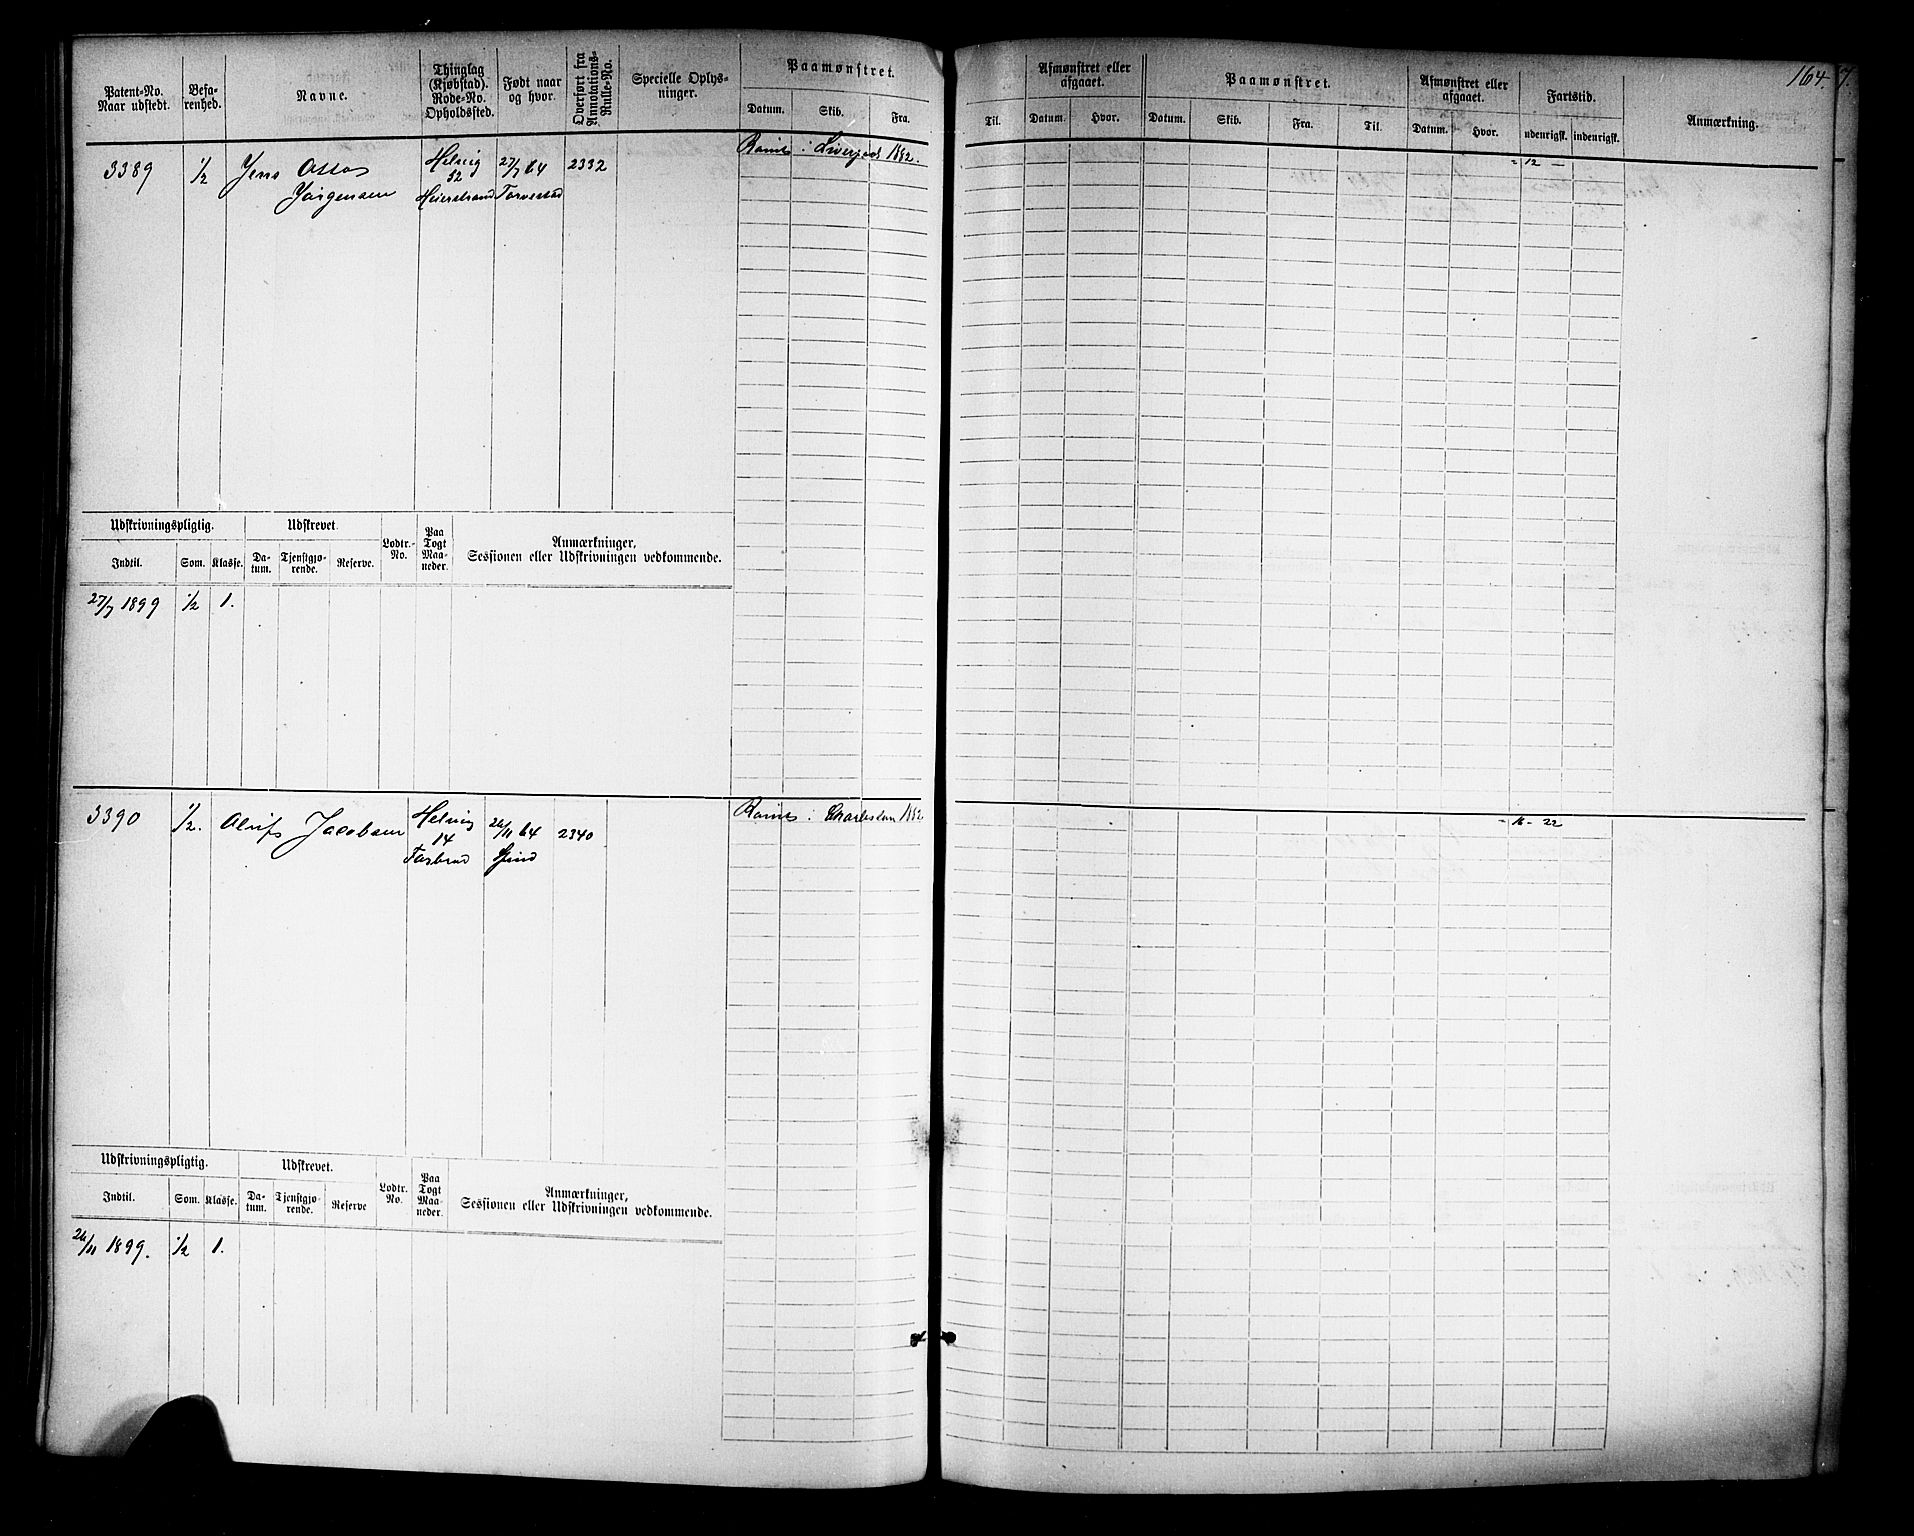 164.
Patent-No.
Naar udstedt.
Befa-
renhed.
Navne.
Thinglag
(Kjøbstad).
Rode-No.
Opholdssted.
Født naar
og hvor.
Overført fra
Annotations-
Rulle-No.
Specielle Oplys-
ninger.
Paamønstret.
Datum. Skib. Fra.
Til.
Afmønstret eller
afgaaet.
Datum. Hvor.
Paamønstret.
Datum. Skib. Fra. Til.
Afmønstret eller
afgaaet.
Datum. Hvor.
Fartstid.
udenrigsk. indenrigsk.
Anmærkning.
3389 1/2 Jens Assos Helvig 27/7 64 2332 i Liverpool 1882. - 12 -
Jørgensen 32
Torvestad
Udskrivningspligtig. Udskrevet.
Indtil. Som. Klasse. Da-
tum. Tjenstgjø-
rende. Reserve. Lodtr.-
No. Paa
Togt
Maa-
neder. Anmærkninger,
Sessionen eller Udskrivningen vedkommende.
27/7 1899 1/2 1.
3390 1/2. Jacobsen Helvig 26/11 64 2340 i Charleston 1882 - 16 - 22
14 Spind
Udskrivningspligtig. Udskrevet.
Indtil. Som. Klasse. Da-
tum. Tjenstgjø-
rende. Reserve Lodtr.
No. Paa
Togt
Maa-
neder. Anmærkninger,
Sessionen eller Udskrivningen vedkommende.
26/11 1899. 1/2 1.